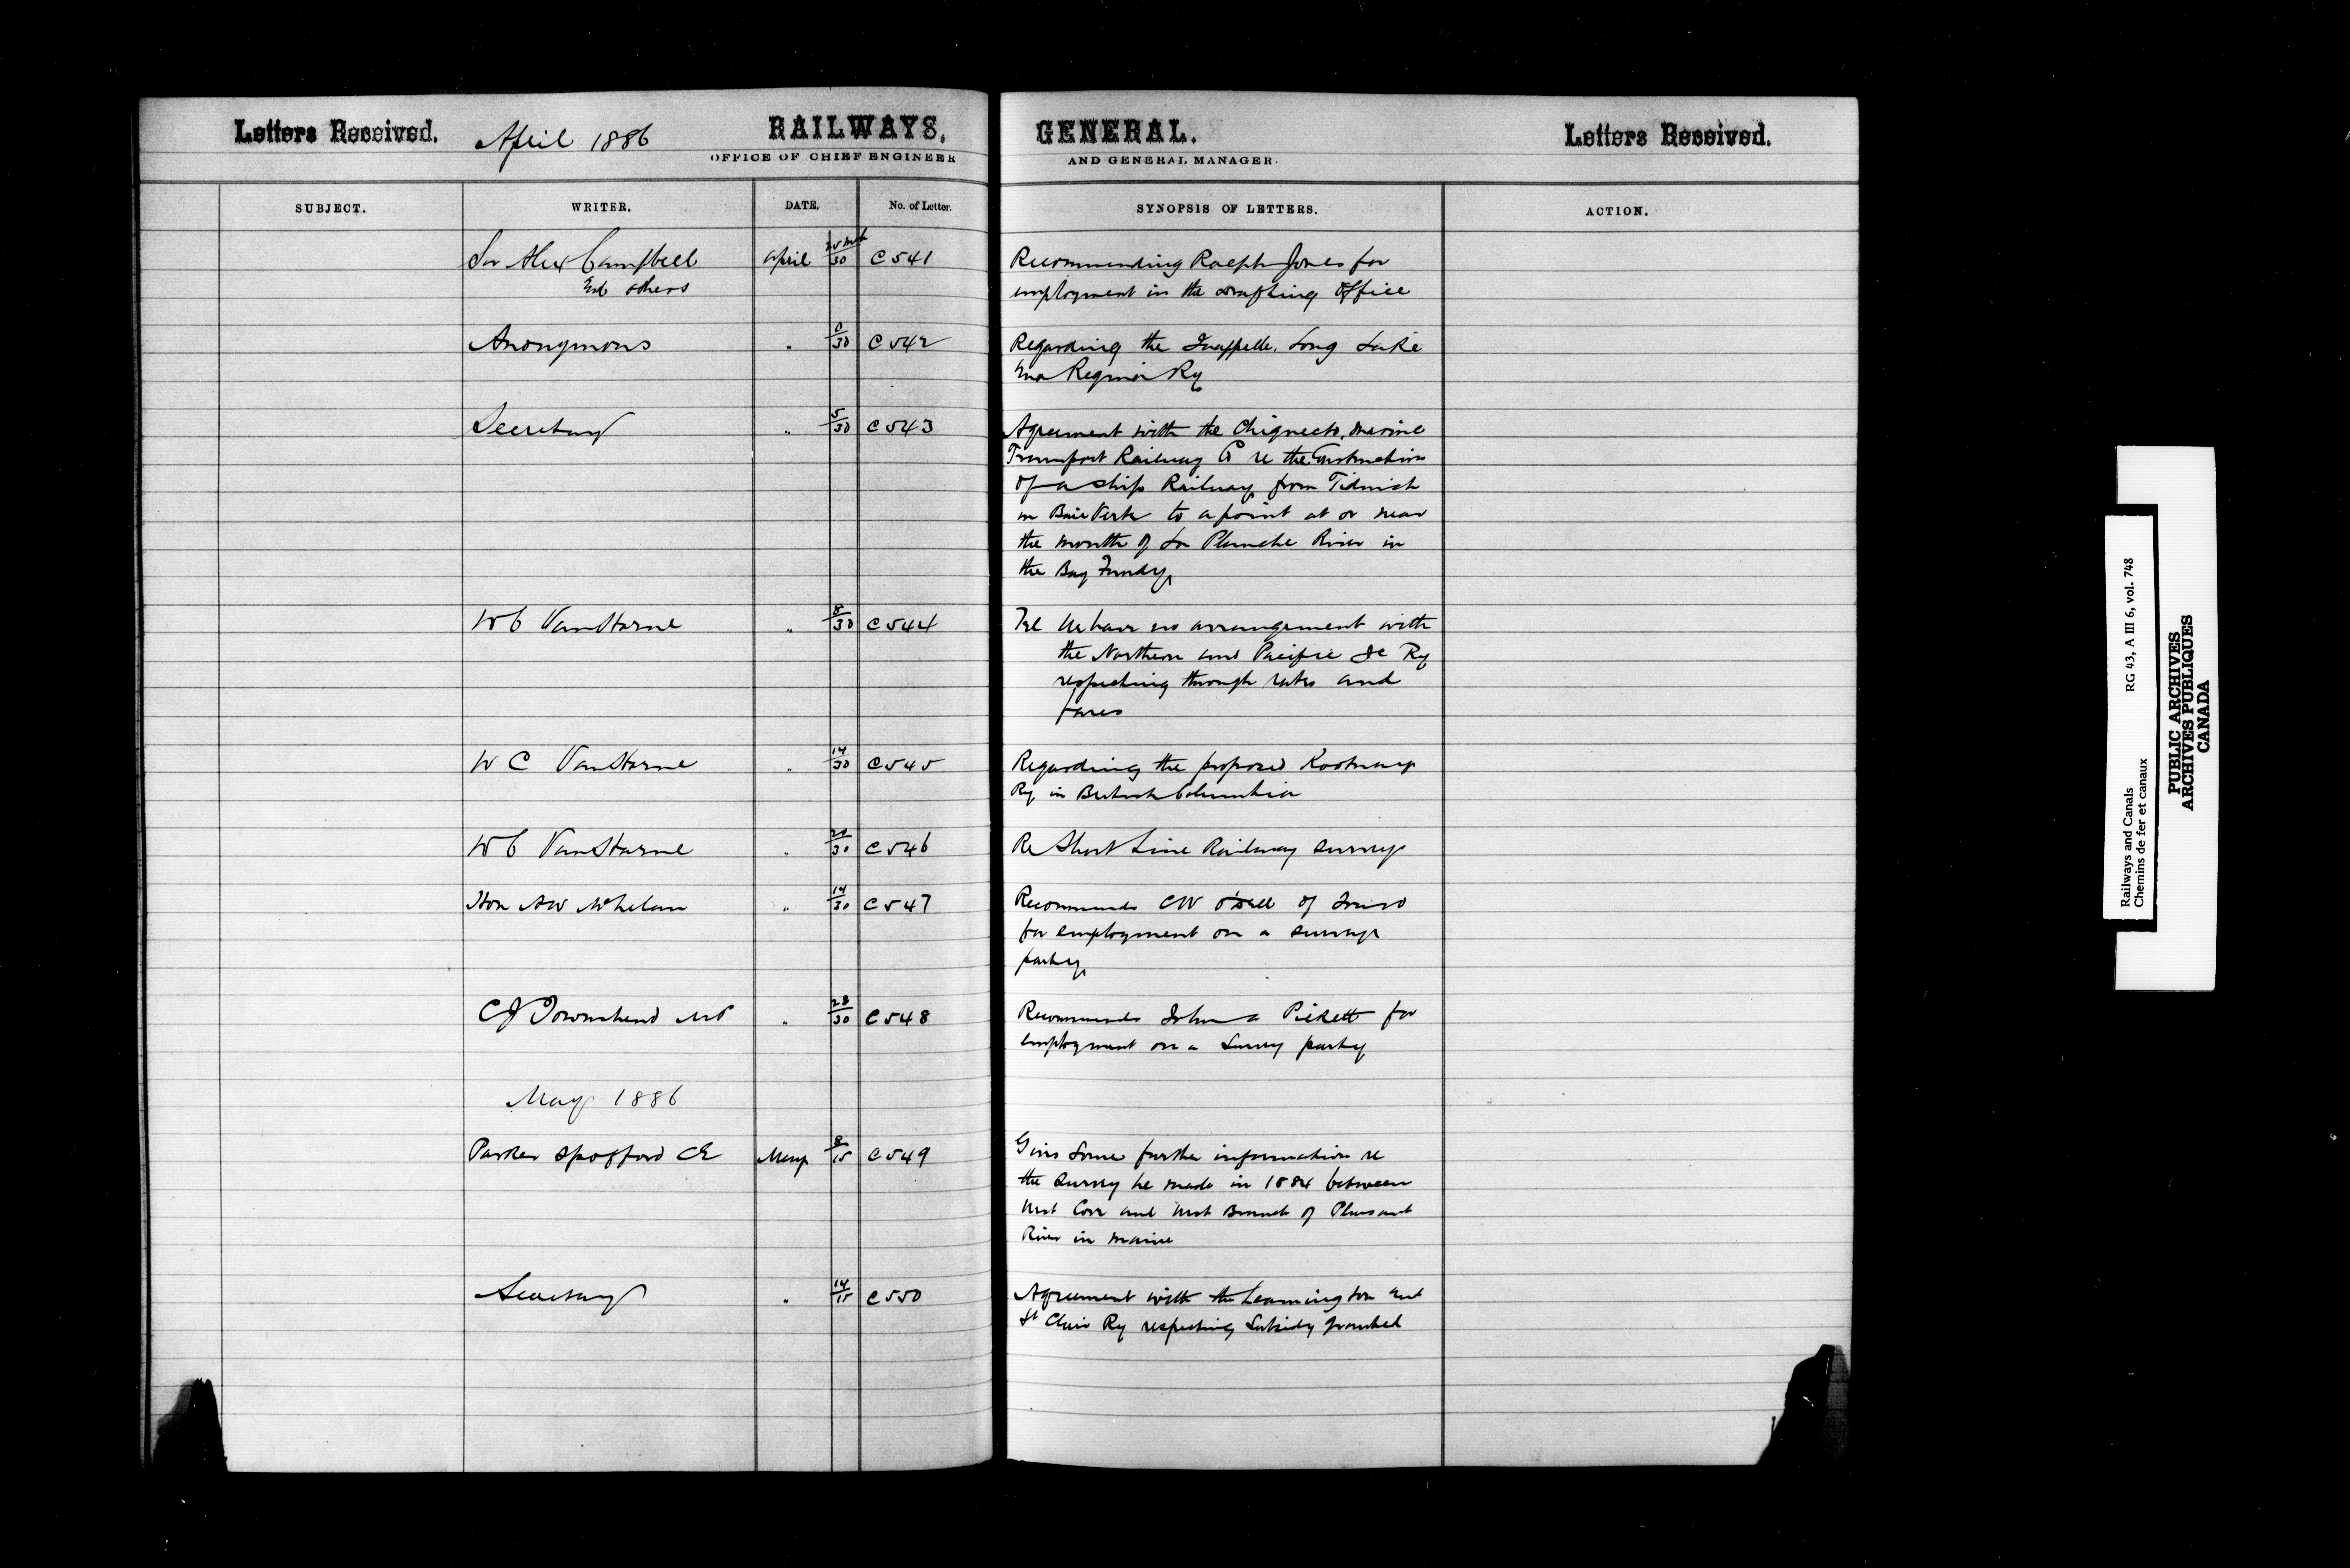 Letters Received. April 1886 RAILWAYS, GENERAL. Letters Received.
OFFICE OF CHIEF ENGINEER AND GENERAL MANAGER.
SUBJECT. WRITER. DATE. No. of Letter. SYNOPSIS OF LETTERS. ACTION.
Sir Alex Campbell April 30 C541 Recommending Ralph Jones for
and others employment in the drafting office
Anonymous " 0/30 C542 Regarding the Quappelle, Long Lake
and Regina Ry
Secretary " 5/30 C543 Agreement with the Chignecto, Marine
Transport Railway Co re the Construction
of a ship Railway from Tidnish
on Baie Verte to a point at or near
the mouth of La Planche River in
the Bay Fundy
W C Van Horne " 8/30 C544 Tel We have no arrangement with
the Northern and Pacific Je Ry
respecting through rates and
fares
W C Van Horne " 14/30 C545 Regarding the proposed Kootenay
Ry in British Columbia
W C Van Horne " 20/30 C546 Re Short Line Railway surveys
Hon AW McLelan " 14/30 C547 Recommends CW Odell of Truro
for employment on a survey
party
CJ Townshend MP " 28/30 C548 Recommends John a Pickett for
employment on a Survey party
May 1886
Parker Spofford CE May 8/15 C549 Gives some further information re
the survey he made in 1884 between
West Cove and West Branch of Pleasant
River in Maine
Secretary " 14/15 C550 Agreement with the Leamington and
St Clair Ry respecting Subsidy granted
Railways and Canals RG 43, A III 6, vol. 748
Chemins de fer et canaux
PUBLIC ARCHIVES
ARCHIVES PUBLIQUES
CANADA